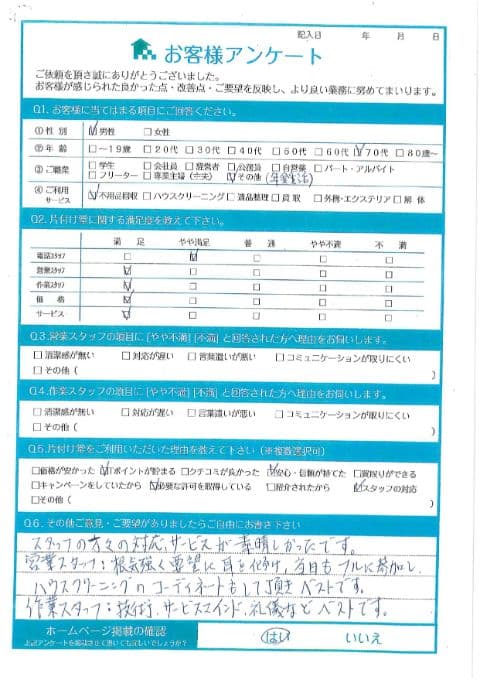 記入日　年　月　日
お客様アンケート
ご依頼を頂き誠にありがとうございました。
お客様が感じられた良かった点・改善点・ご要望を反映し、より良い業務に努めてまいります。
Q1. お客様に当てはまる項目にご回答ください。
①性別 ☑男性 □女性
②年齢 □～19歳 □20代 □30代 □40代 □50代 □60代 ☑70代 □80歳～
③ご職業 □学生 □会社員 □経営者 □公務員 □自営業 □パート・アルバイト
□フリーター □専業主婦(主夫) ☑その他(年金生活)
④ご利用サービス ☑不用品回収 □ハウスクリーニング □遺品整理 □買取 □外構・エクステリア □解体
Q2. 片付け堂に関する満足度を教えて下さい。
満足 やや満足 普通 やや不満 不満
電話スタッフ □ ☑ □ □ □
営業スタッフ ☑ □ □ □ □
作業スタッフ ☑ □ □ □ □
価格 ☑ □ □ □ □
サービス ☑ □ □ □ □
Q3. 営業スタッフの項目に [やや不満] [不満] と回答された方へ理由をお伺いします。
□清潔感が無い □対応が遅い □言葉遣いが悪い □コミュニケーションが取りにくい
□その他( )
Q4. 作業スタッフの項目に [やや不満] [不満] と回答された方へ理由をお伺いします。
□清潔感が無い □対応が遅い □言葉遣いが悪い □コミュニケーションが取りにくい
□その他( )
Q5. 片付け堂をご利用いただいた理由を教えて下さい（※複数選択可）
□価格が安かった ☑Tポイントが貯まる □クチコミが良かった ☑安心・信頼が持てた □買取りができる
□キャンペーンをしていたから ☑必要な許可を取得している □紹介されたから ☑スタッフの対応
□その他( )
Q6. その他ご意見・ご要望がありましたらご自由にお書き下さい
スタッフの方々の対応、サービスが素晴しかったです。
営業スタッフ：根気強く要望に耳を傾け、当日もフルに参加し、
ハウスクリーニングのコーディネートもして頂きベストです。
作業スタッフ：技術、サービスマインド、礼儀などベストです。
ホームページ掲載の確認 はい いいえ
上記アンケートを掲載させて頂いても宜しいでしょうか？